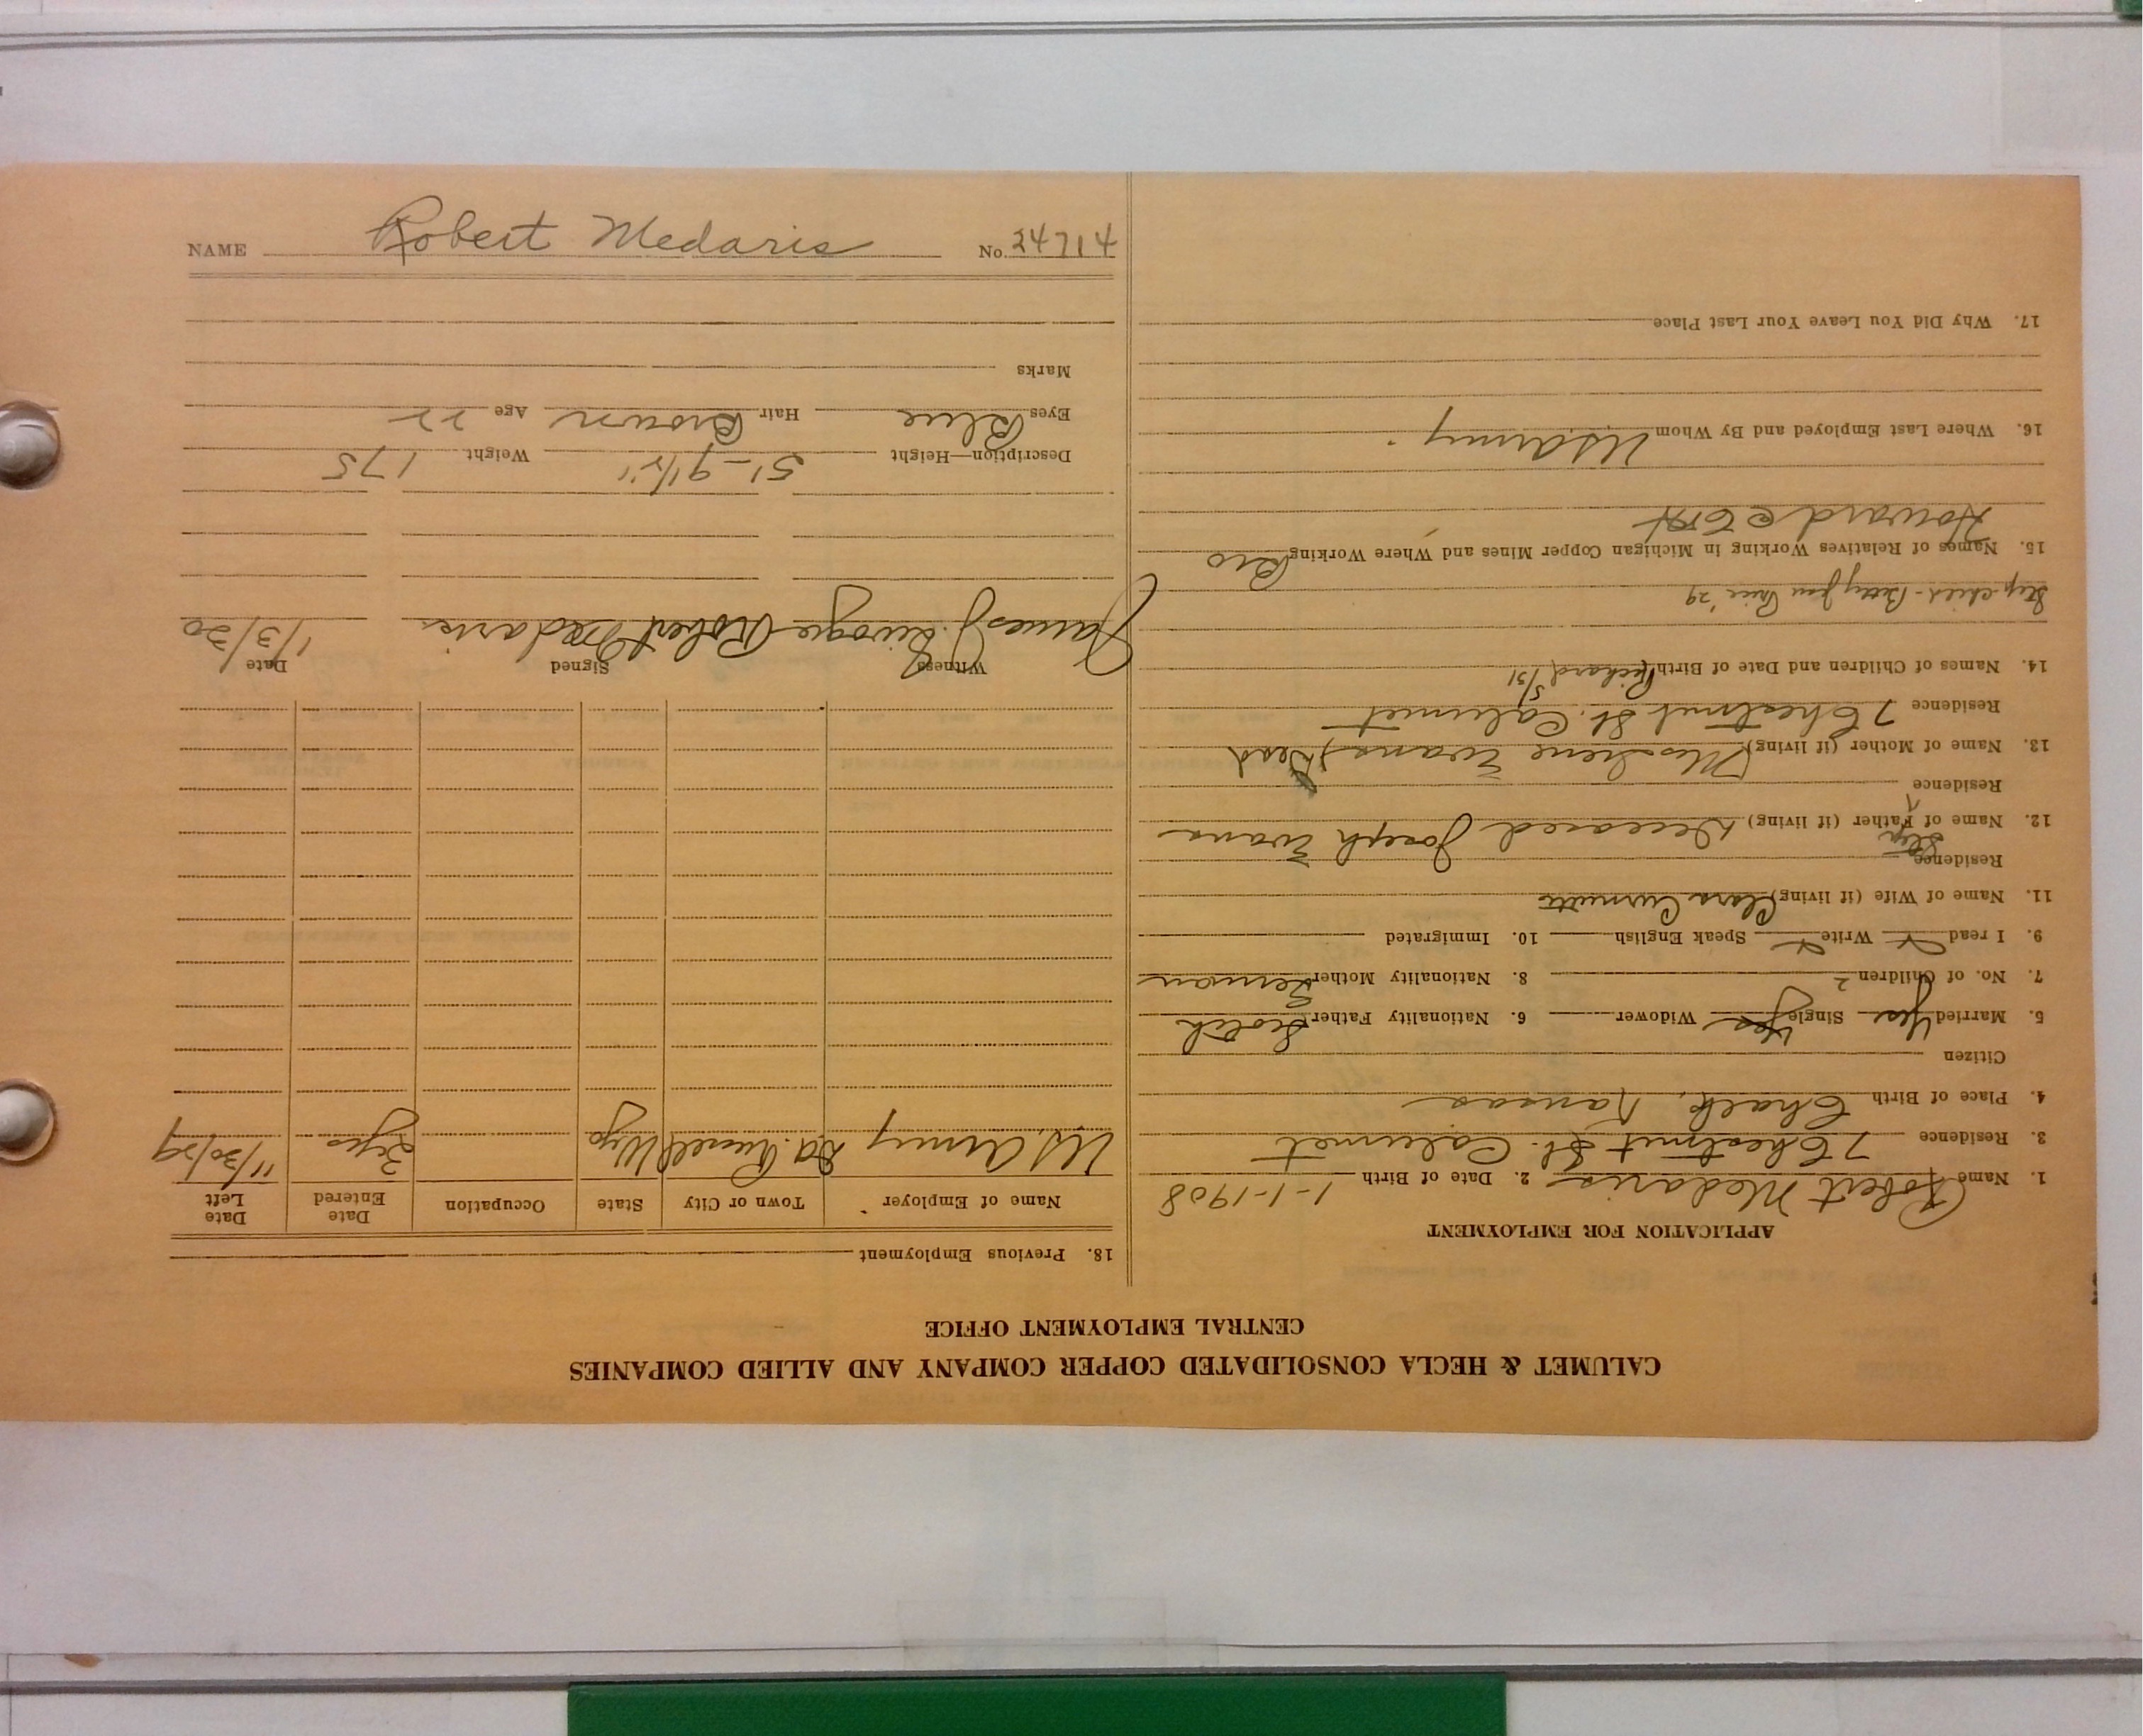 NAME Robert Medaris No. 24714
CALUMET & HECLA CONSOLIDATED COPPER COMPANY AND ALLIED COMPANIES
CENTRAL EMPLOYMENT OFFICE
APPLICATION FOR EMPLOYMENT
1. Name Robert Medaris 2. Date of Birth 1-1-1908
3. Residence 7 Chestnut St. Calumet
4. Place of Birth Chalk, Kansas
Citizen
5. Married Yes Single Yes Widower 6. Nationality Father Scotch
7. No. of Children 2 8. Nationality Mother German
9. I read Write Speak English 10. Immigrated
11. Name of Wife (if living) Clara
Residence
12. Name of Step Father (if living) Deceased Joseph Evans
Residence
13. Name of Mother (if living) Evans) Dead
Residence 7 Chestnut St. Calumet
14. Names of Children and Date of Birth Richard 5/31
Step-child - Betty Jean '29
15. Names of Relatives Working in Michigan Copper Mines and Where Working Bro
Howard C
16. Where Last Employed and By Whom US Army
17. Why Did You Leave Your Last Place
18. Previous Employment
Name of Employer Town or City State Occupation Date Entered Date Left
U.S. Army Ft. Russell Wyo 3 yrs 11/30/29
Witness Signed Date
James J. Robert Medaris 1/3/30
Description—Height 5'-9 1/2" Weight 175
Eyes Blue Hair Brown Age 22
Marks